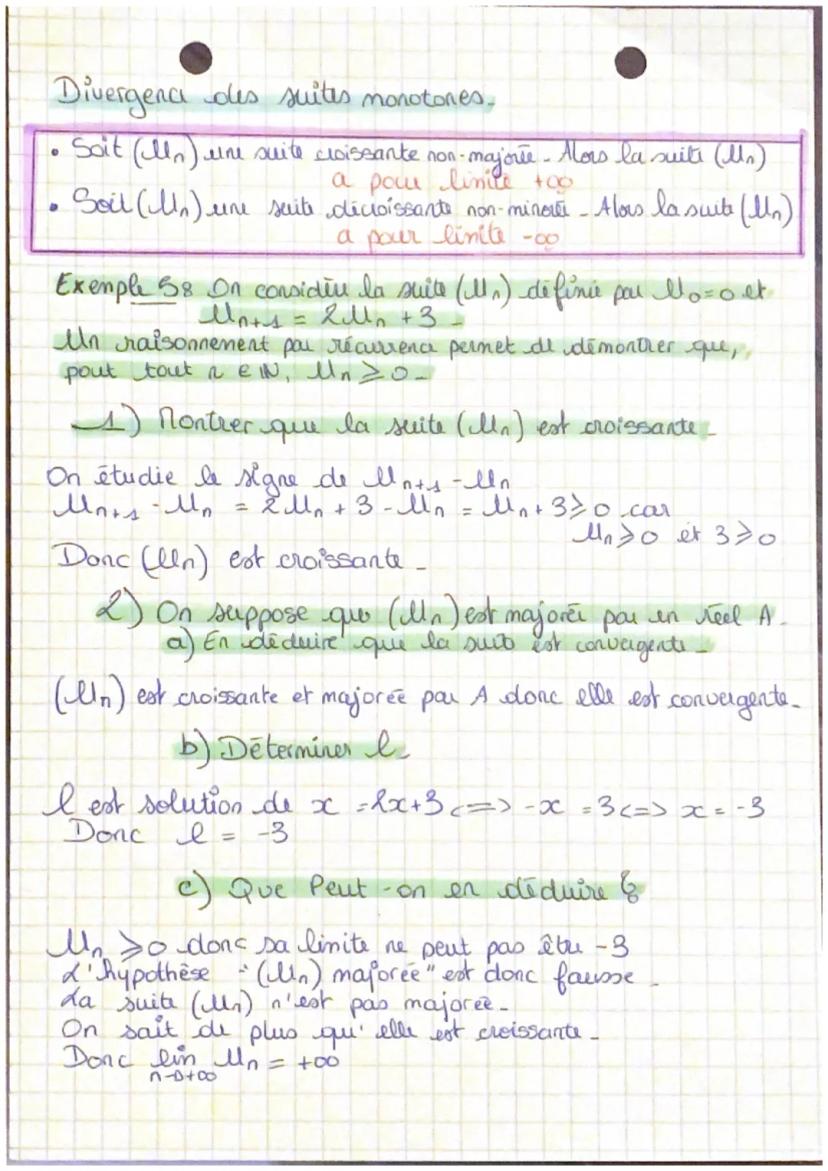 Divergence des suites monotones.
• Soit (Un) une suite croissante non-majorée. Alors la suite (Un)
a pour limite +∞
• Soit (Un) une suite décroissante non-minorée. Alors la suite (Un)
a pour limite -∞
Exemple 58 On considère la suite (Un) définie par U0=0 et
Un+1 = 2Un + 3.
Un raisonnement par récurrence permet de démontrer que,
pout tout n ∈ ℕ, Un ≥ 0.
1) Montrer que la suite (Un) est croissante.
On étudie le signe de Un+1 - Un
Un+1 - Un = 2Un + 3 - Un = Un + 3 ≥ 0 car
Un ≥ 0 et 3 ≥ 0
Donc (Un) est croissante.
2) On suppose que (Un) est majorée par un réel A.
a) En déduire que la suite est convergente.
(Un) est croissante et majorée par A donc elle est convergente.
b) Déterminer l.
l est solution de x = 2x+3 <=> -x = 3 <=> x = -3
Donc l = -3
c) Que Peut-on en déduire ?
Un ≥ 0 donc sa limite ne peut pas être -3
L'hypothèse "(Un) majorée" est donc fausse.
La suite (Un) n'est pas majorée.
On sait de plus qu'elle est croissante.
Donc lim Un = +∞
n→+∞